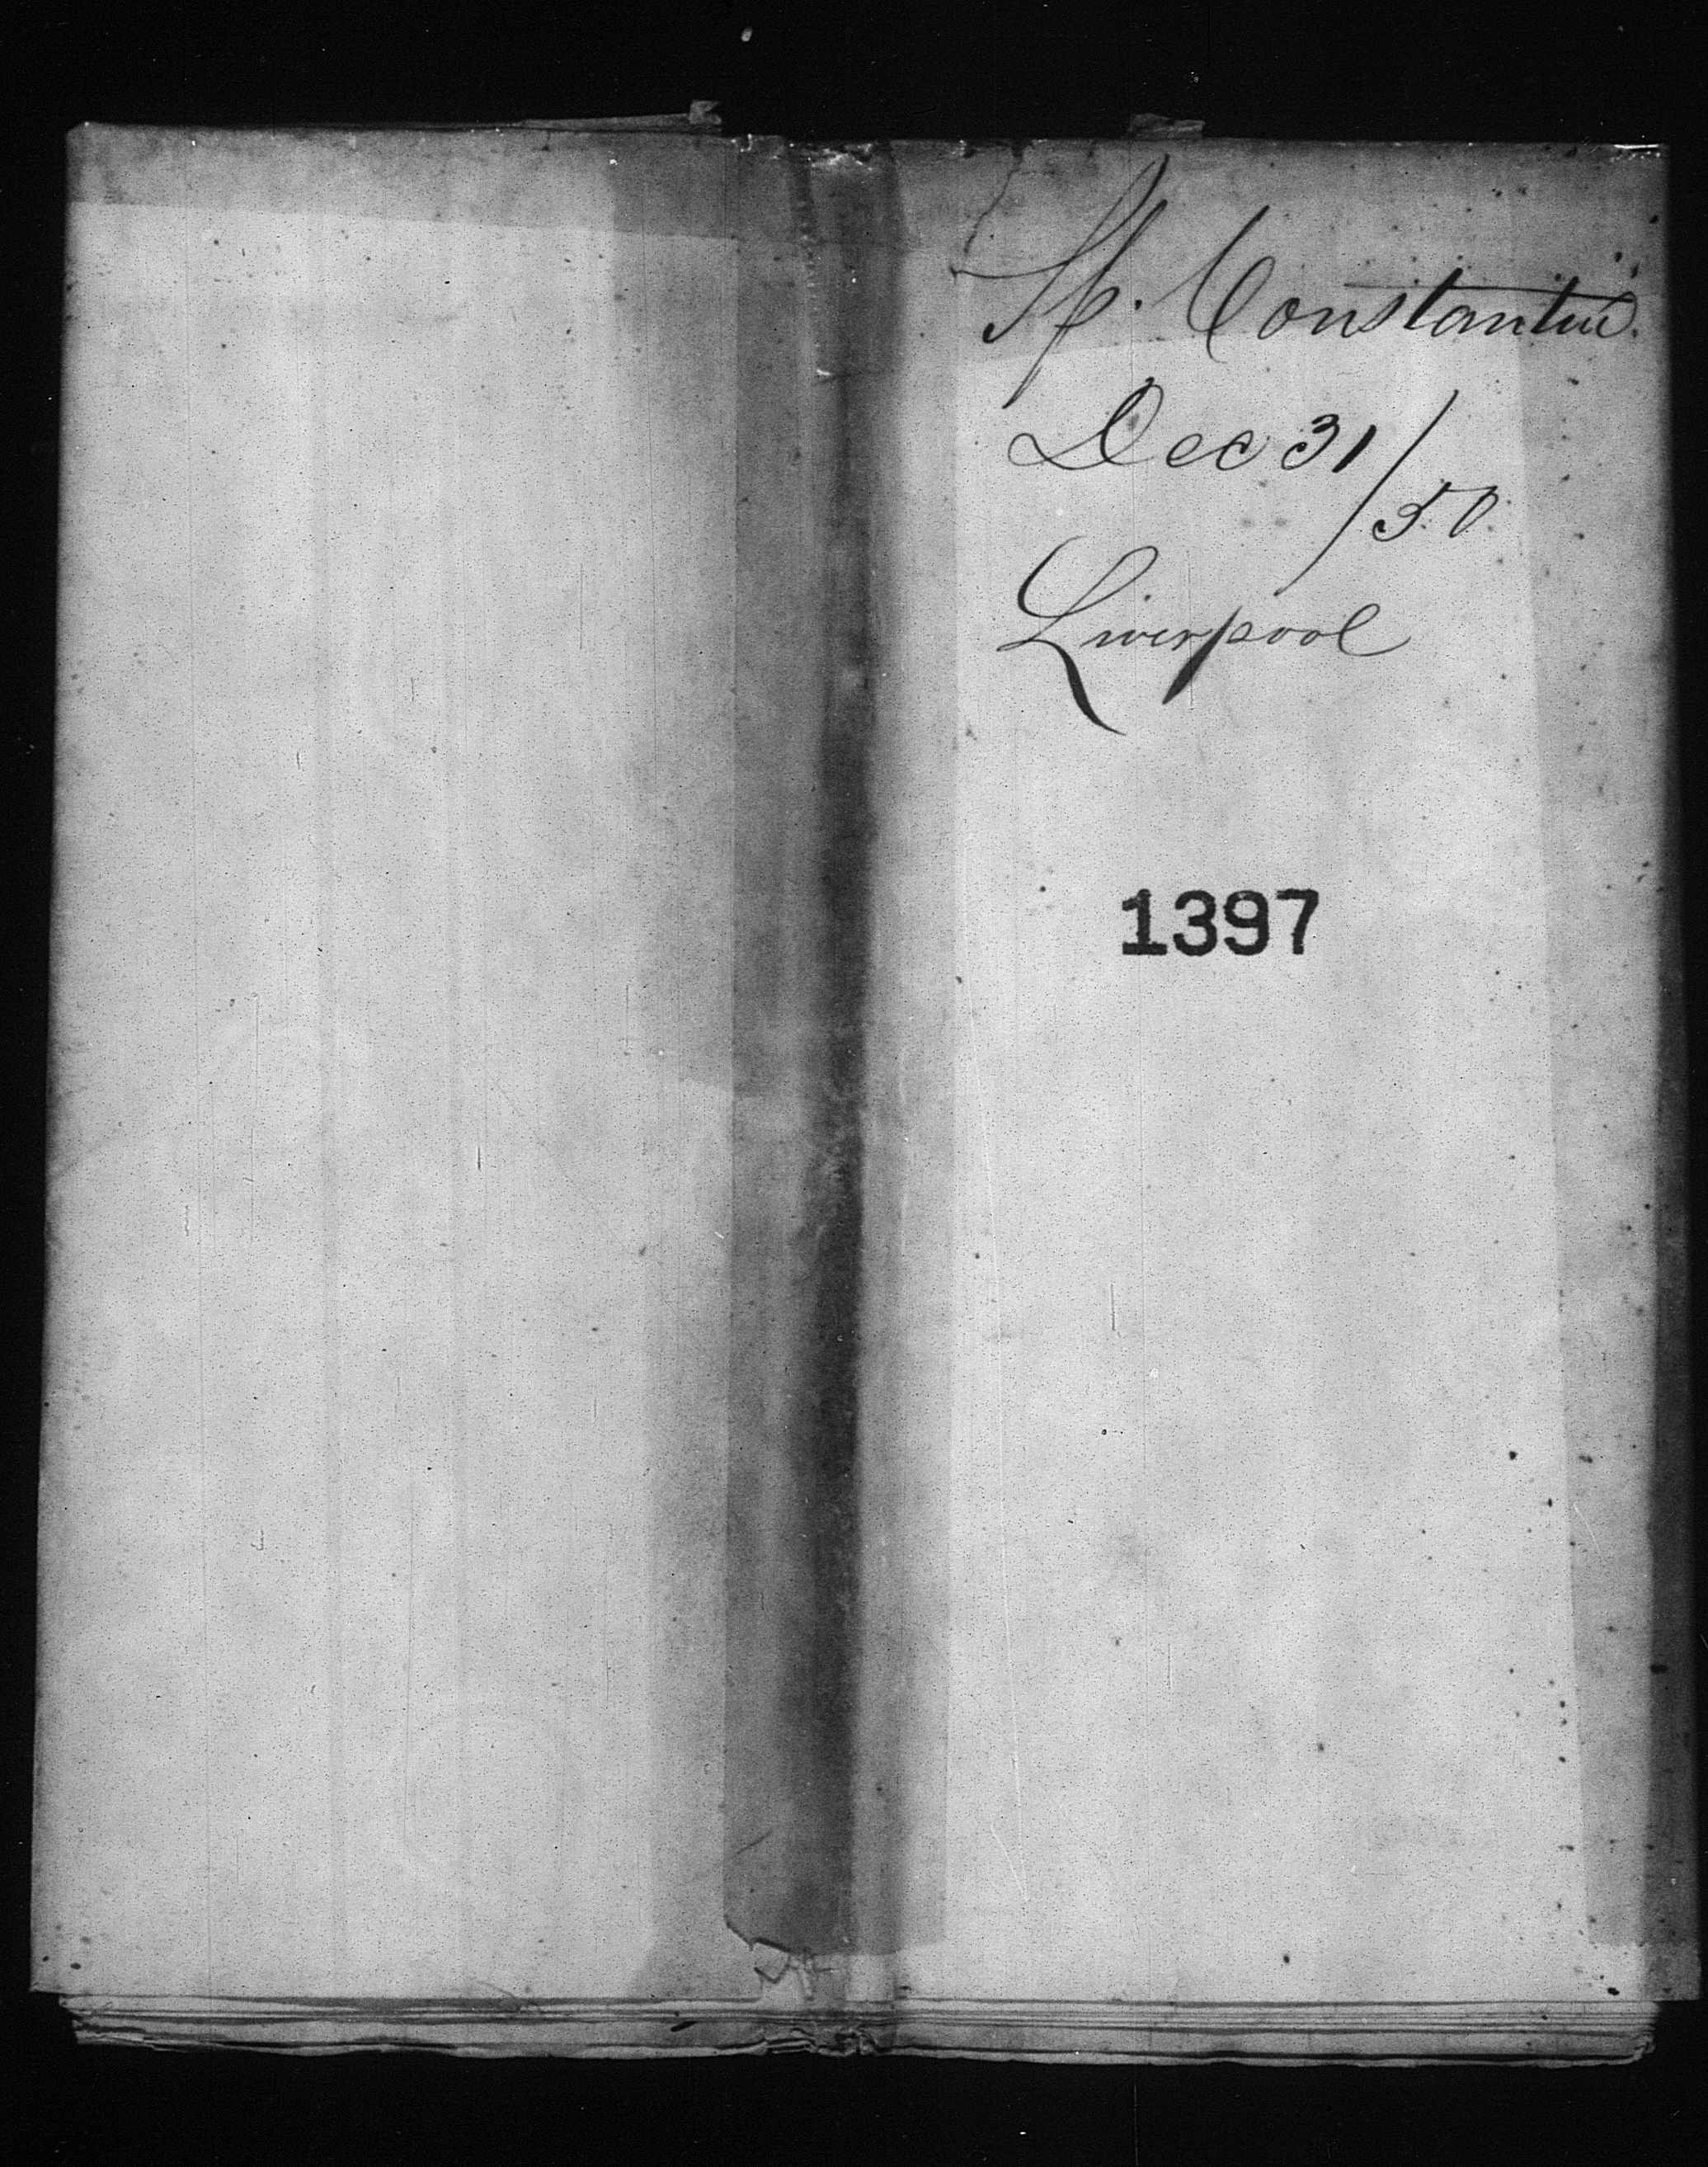 Sp. Constantine.
Dec 31/50
Liverpool
1397